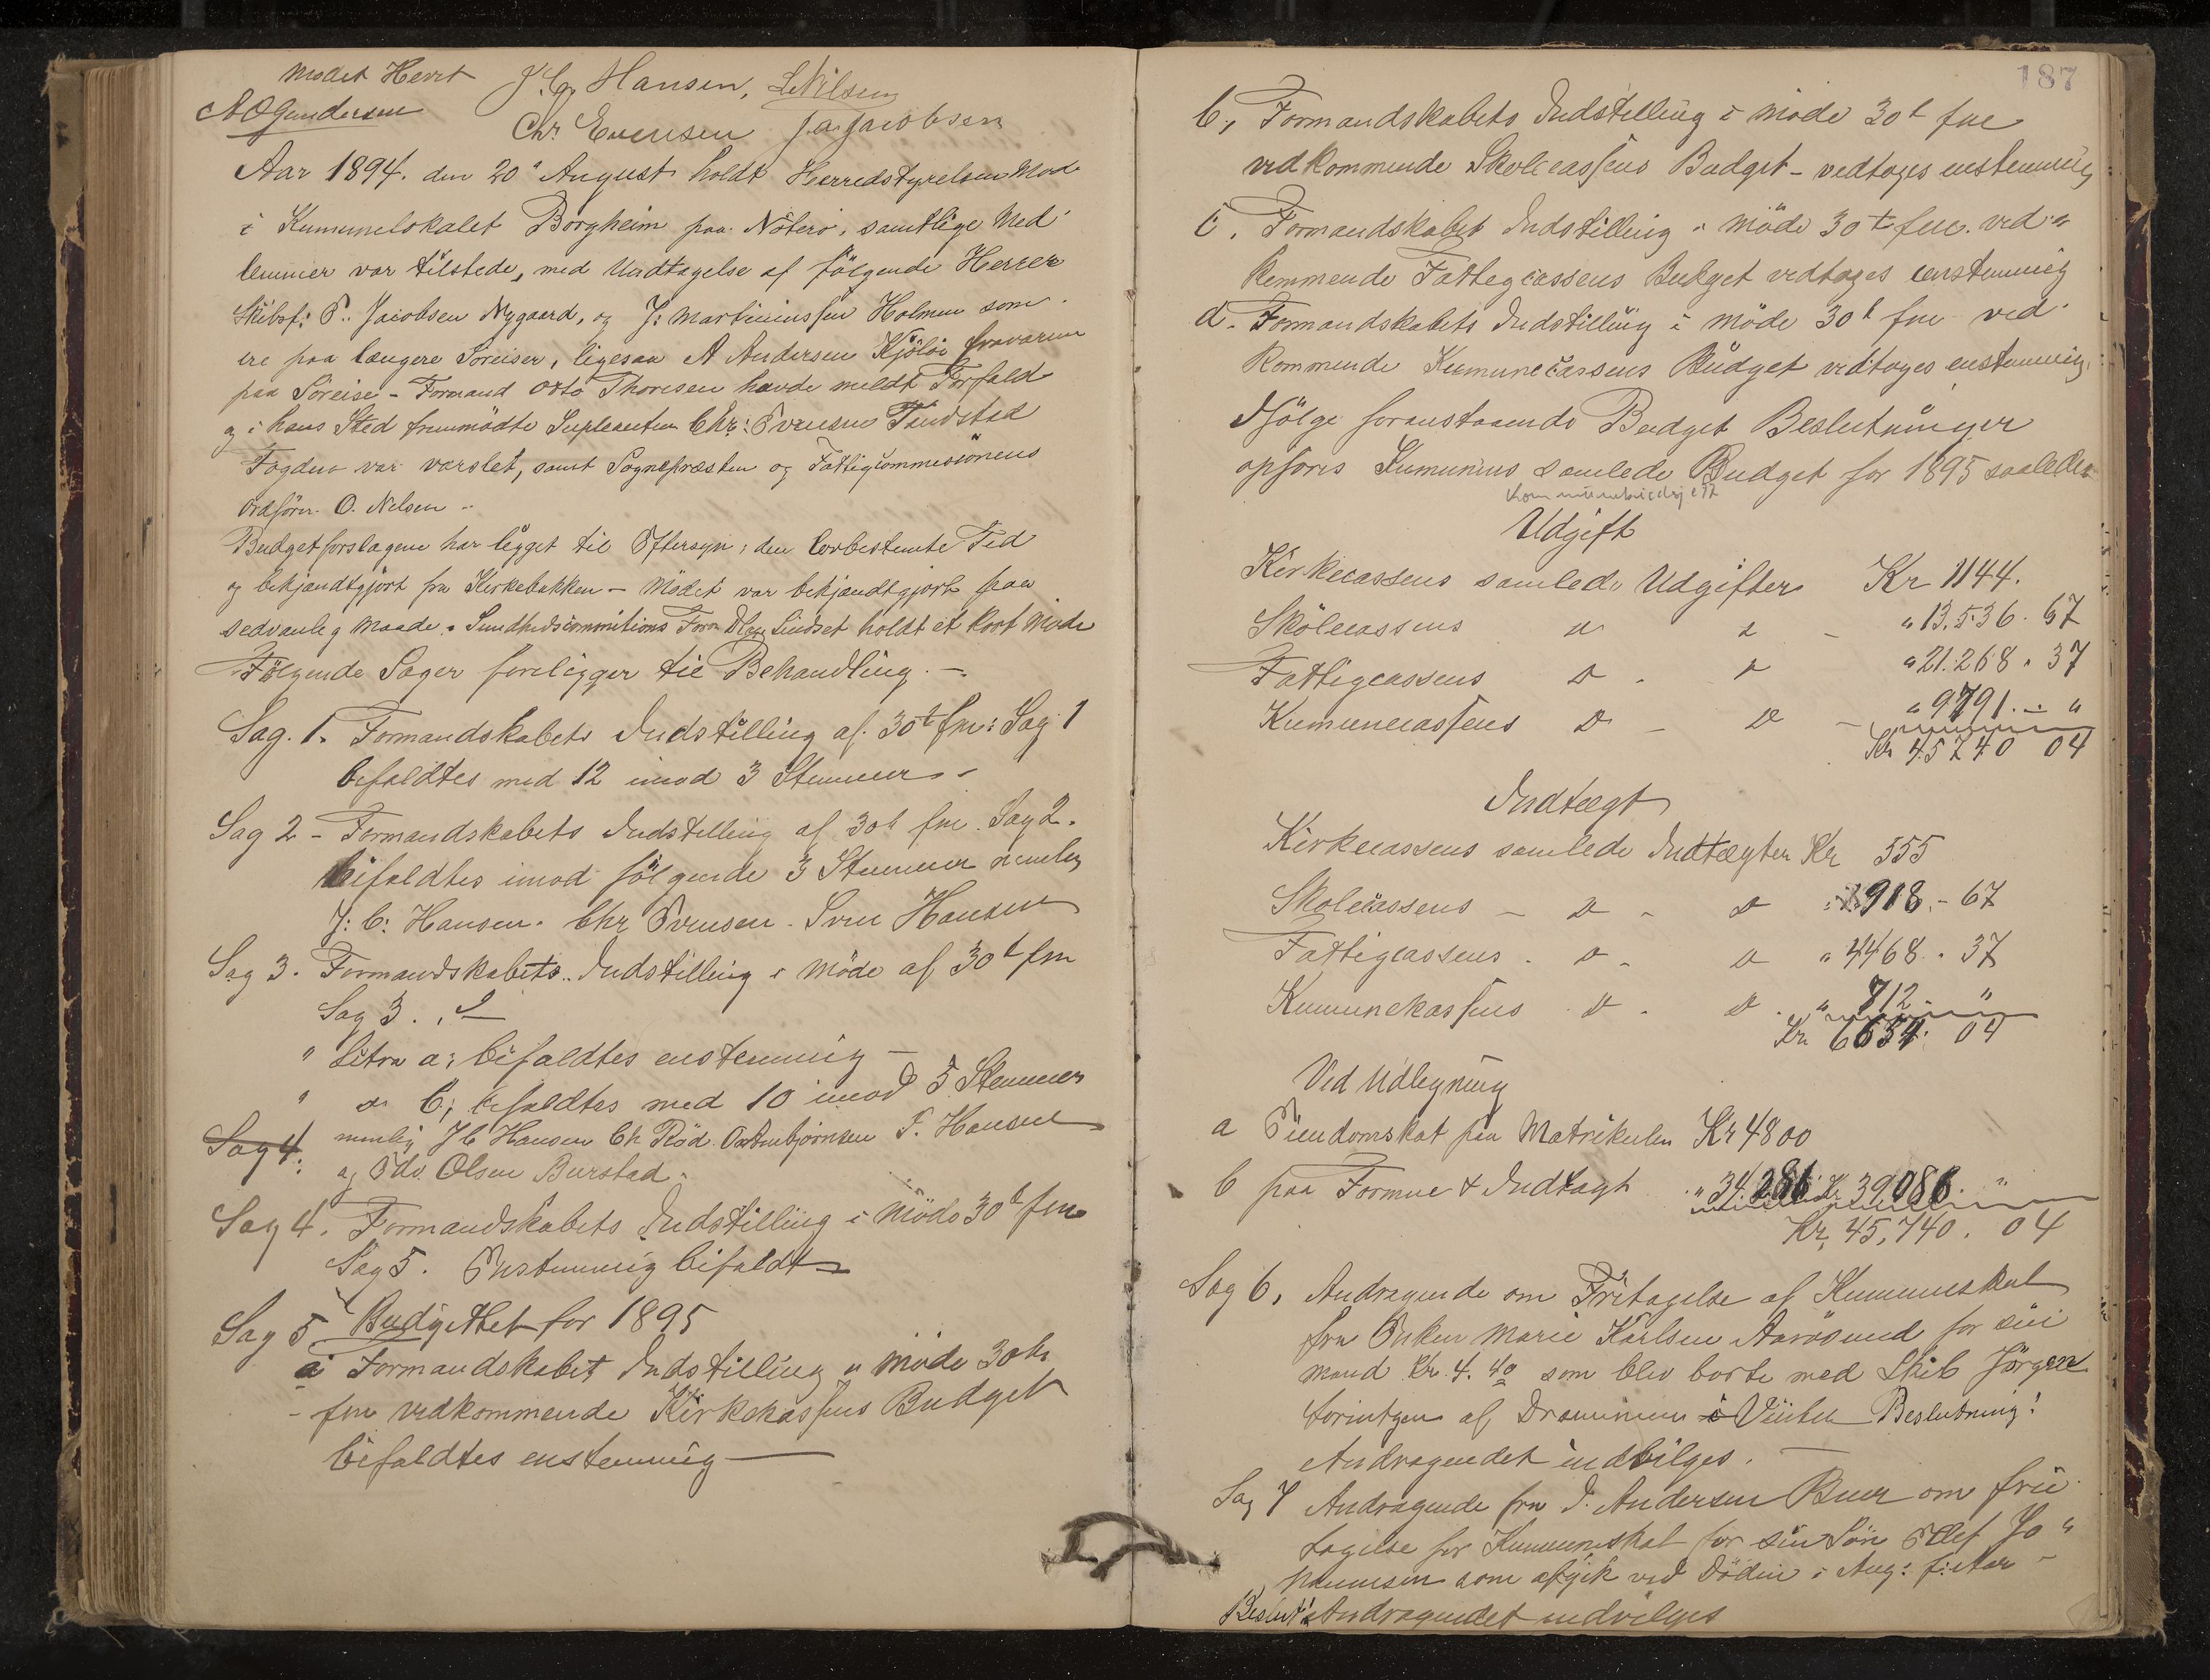 Mødet Hevet J. C. Hansen, L. Nilsen
A O Gundersen Chr. Evensen J. A. Jacobsen
Aar 1894. den 20d August holdt Herredstyrelsen Møde
i Kumunelokalet Borgheim paa Nøterø, samtlige Med
lemmer var tilstede, med Undtagelse af følgende Herrer
Skibsf: P. Jacobsen Nygaard, og J: Martiniussen Holmen som
ere paa længere Søreiser, ligesaa A Andersen Kjøløe fraværende
paa Søreise - Formand Otto Thoresen havde meldt Forfald
og i hans Sted fremmødte Supleanten Chr: Evensen Tandstad
Fogden var varslet, samt Sognepræsten og Fattigcommisionens
Ordfører O. Nilsen -
Budgetforslagene har ligget til Eftersyn i den lovbestemte Tid
og bekjændtgjort fra Kirkebakken - Mødet var bekjændtgjort paa
sedvanlig Maade. Sundhedscommitions Form Dlæge Lindset holdt et kort Møde
Følgende Sager foreligger til Behandling. -
Sag. 1. Formandskabets Indstilling af 30t fm: Sag 1
bifaldtes med 12 imod 3 Stemmer -
Sag 2 - Formandskabets Indstilling af 30t fm. Sag 2.
bifaldtes imod følgende 3 Stemmer nemlig
J: C: Hansen. Chr Evensen - Sven Hansen
Sag 3. Formandskabets Indstilling i Møde af 30t fm
Sag 3.
" Litra a: bifaldtes enstemmig -
" " b; bifaldtes med 10 imod 5 Stemmer
Sag 4: nemlig J C Hansen Ch Rød. O. Anbjørnsen S. Hansen
og Edv. Olsen Burstad.
Sag 4. Formandskabets Indstilling i Møde 30t fm
Sag 5. Enstemmig bifaldt
Sag 5 Budgettet for 1895
a Formandskabet Indstilling i møde 30te
- fm vedkommende Kirkekassens Budget
bifaldtes enstemmig
187
b, Formandskabets Indstilling i møde 30t fm
vedkommende Skolecassens Budget - vedtages enstemmig
c. Formandskabet Indstilling i møde 30t fm. ved
kommende Fattigcassens Budget vedtages enstemmig
d. Formandskabets Indstilling i møde 30t fm ved
kommende Kumunecassens Budget vedtages enstemmig
Ifølge foranstaaende Budget Beslutninger
opføres Kumunens samlede Budget for 1895 saaledes
Udgift
Kirkecassens samlede Udgifter Kr 1144.
Skolecassens " " - " 13.536. 67
Fattigcassens " - " " 21.268. 37
Kumunecassens " - " - " 9791. - "
Kr 45740 04
Indtægt
Kirkecassens samlede Indtægter Kr 555
Skolecassens - " - " " 918. - 67
Fattigcassens - " - " " 4468. 37
Kumunekassens " - " . " 712 - "
Kr 6654. 04
Ved Udlegning
a Eiendomskat paa Matrikulen Kr 4800
b paa Formue & Indtægt " 34.286 Kr 39,086. "
Kr, 45,740. 04
Sag 6, Andragende om Fritagelse af Kumuneskat
fra Enken Marie Karlsen Aarøsund for sin
mand Kr. 4. 40 som blev borte med Skib Jørgen
af Drammen i Vinter Beslutning:
Andragendet indvilges.
Sag 7 Andragende fra J. Andersen Buer om fri
tagelse for Kumuneskat for sin Søn Olef Jo
hannesen som afgik ved Døden i Aug: f: Aar -
Beslut: Andragendet indvilges